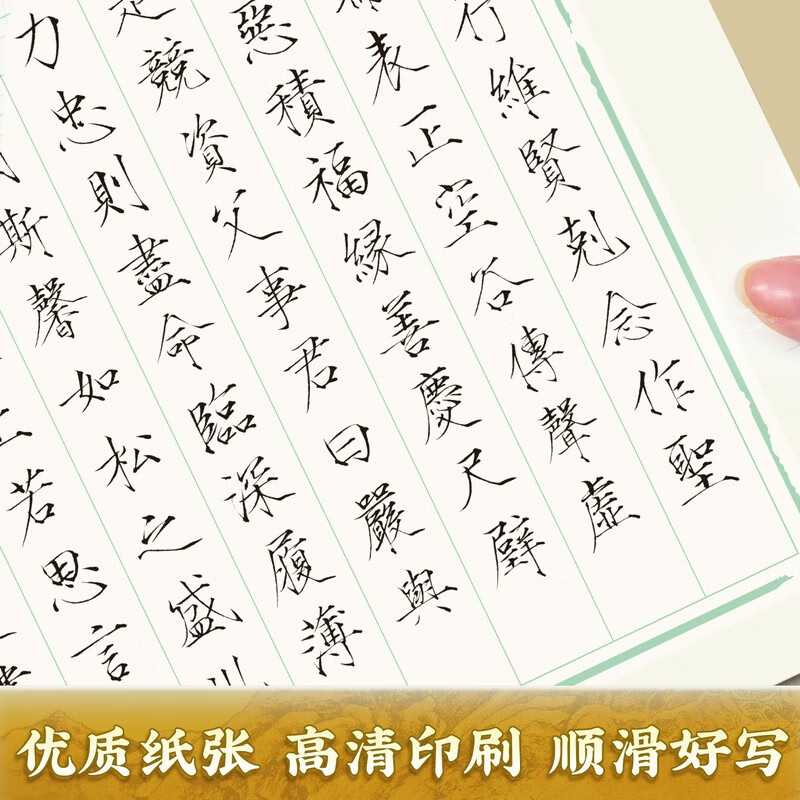 行維賢剋念作聖
表正空谷傳聲虛
惡積福緣善慶尺璧
是競資父事君曰嚴與
力忠則盡命臨深履薄
斯馨如松之盛川
止若思言
优质纸张 高清印刷 顺滑好写